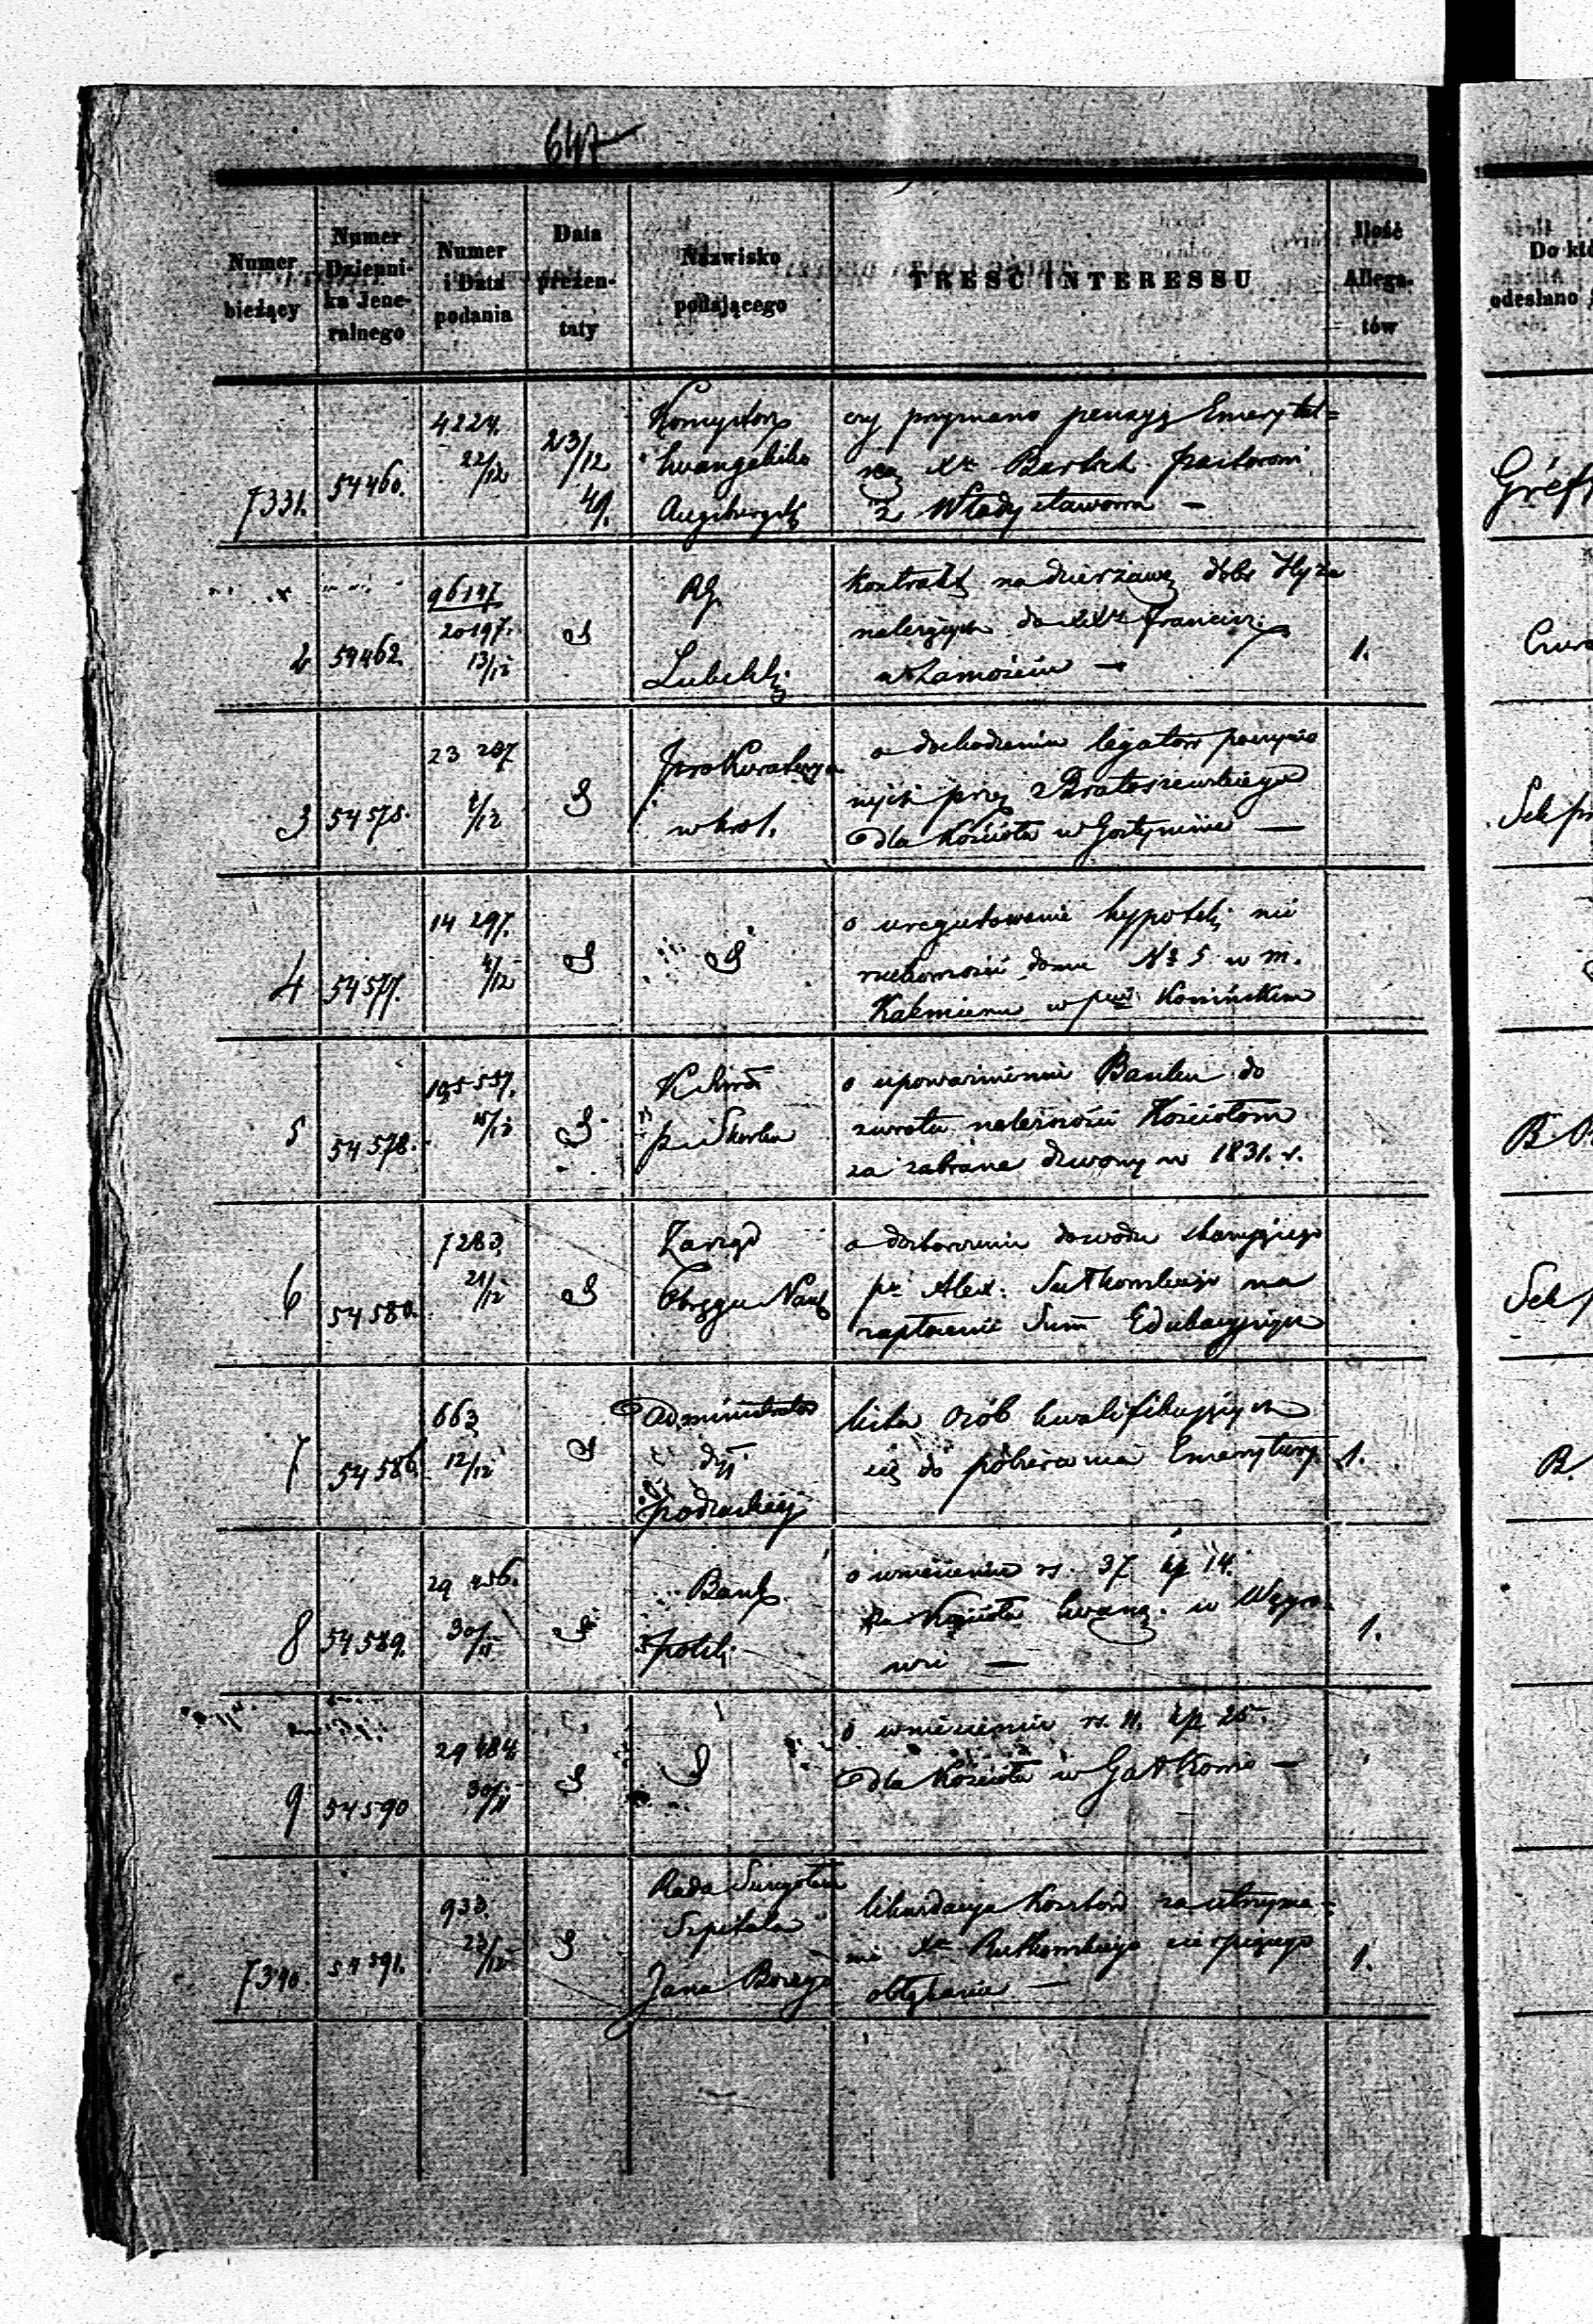 647
Numer
bieżący
Numer
Dzienni-
ka Jene-
ralnego
Numer
i Data
podania
Data
prezen-
taty
Nazwisko
podającego
TREŚĆ INTERESSU
Ilość
Allega-
tów
Do któ
odesłano
7331.
54460.
4224.
22/12
23/12
49.
Konsystorz
Ewangelicko
Augsburgski
czy przyznano pensyą Emerytal=
ną Xu Bartsch pastorowi
z Władysławowa —
2
54462.
96147
20197.
13/12
RG.
Lubelski
Kontrakt na dzierżawę dóbr Hyża
należących do XXw Francisz.
w Zamościu —
1.
3
54575.
23 207
2/12
Prokuratorya
w król.
o dochodzeniu legatów poczynio
nych przez Bratoszewskiego
dla Kościoła w Gostyninie —
4
54577.
14 297.
4/12
o uregulowanie hypoteki nie
ruchomości domu № 5 w m.
Kazimierzu w pow. Konińskim
5
54578.
105557.
15/12
K. R.
P. i Skarbu
o upoważnieniu Banku do
zwrotu należności Kościołom
za zabrane dzwony w 1831. r.
6
54580.
7283.
21/12
Zarząd
Okręgu Nauk
o dostarczenie dowodu służącego
pu Alex. Sułkowskiego na
zapłacenie Sum Edukacyjnych
7
54586.
663
12/12
Administrator
dyj.
podlaskiej
lista osób kwalifikujących
się do pobierania Emerytury
1.
8
54589.
29 456.
30/11
Bank
polski
o wniesieniu rs. 37 kp 14.
dla Kościoła Ewang. w Węgro-
wie —
1.
9
54590
29484
30/11
o wniesieniu rs. 11. kp 25.
dla Kościoła w Gałkowie —
7340.
54591.
933.
23/12
Rada Szczegółowa
Szpitala
Jana Bożego
likwidacya Kosztów za utrzyma-
nie Xa Rutkowskiego cierpiącego
obłąkanie —
1.